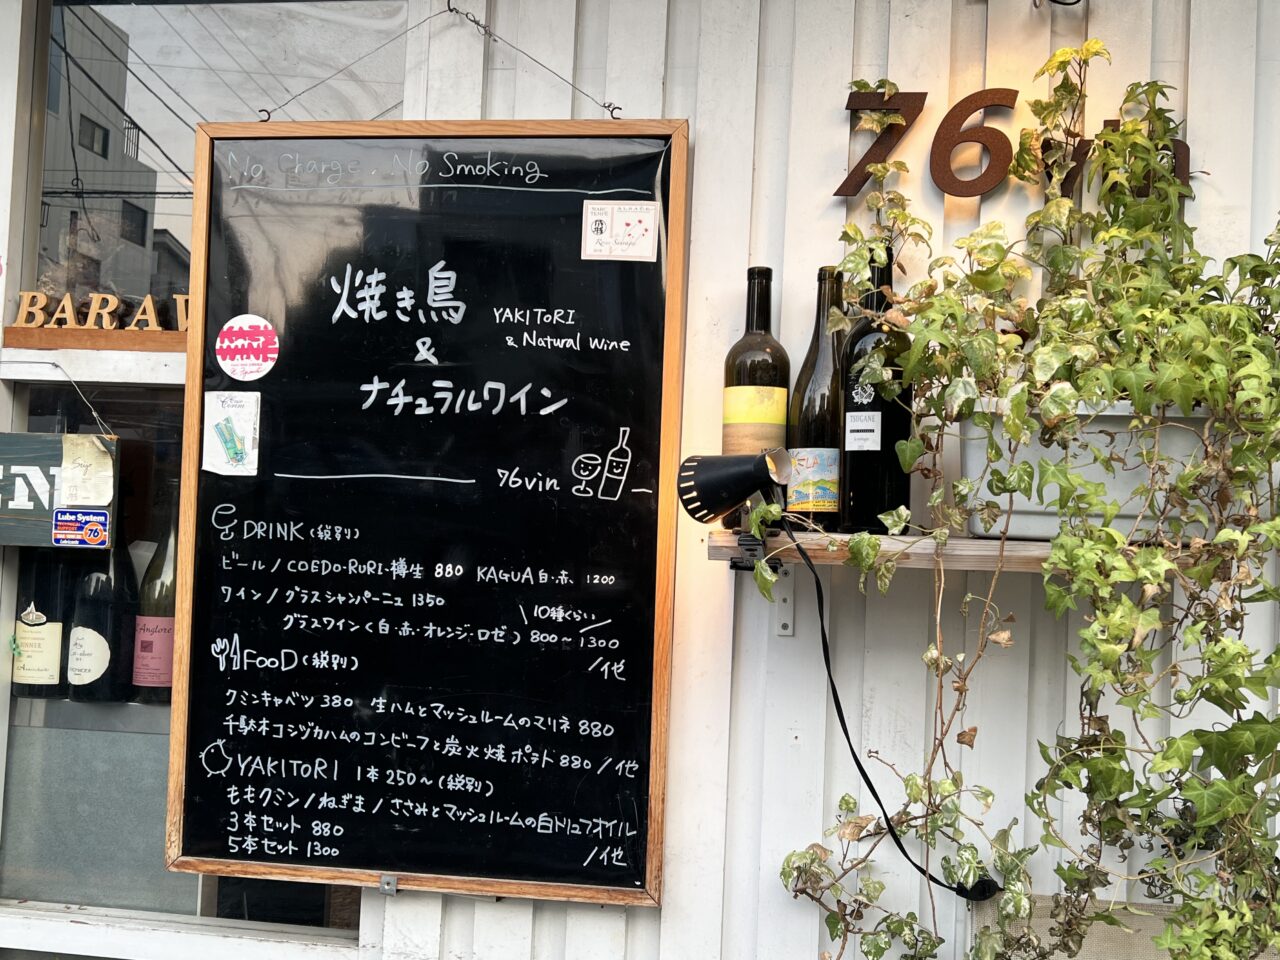 No Charge. No Smoking
MARC TEMPÉ
ALSACE
焼き鳥
YAKITORI
& Natural Wine
&
ナチュラルワイン
76vin
DRINK (税別)
ビール / COEDO・RURI・樽生 880 KAGUA 白・赤 1200
ワイン / グラスシャンパーニュ 1350
10種くらい
グラスワイン (白・赤・オレンジ・ロゼ) 800〜1300
/他
FOOD (税別)
クミンキャベツ 380 生ハムとマッシュルームのマリネ 880
千駄木コシヅカハムのコンビーフと炭火焼ポテト 880 /他
YAKITORI 1本250〜(税別)
ももクミン / ねぎま / ささみとマッシュルームの白トリュフオイル
3本セット 880
5本セット 1300
/他
76 vin
TSUGANE
BAR A
EN
Lube System
76
Lubricants
l'Anglore